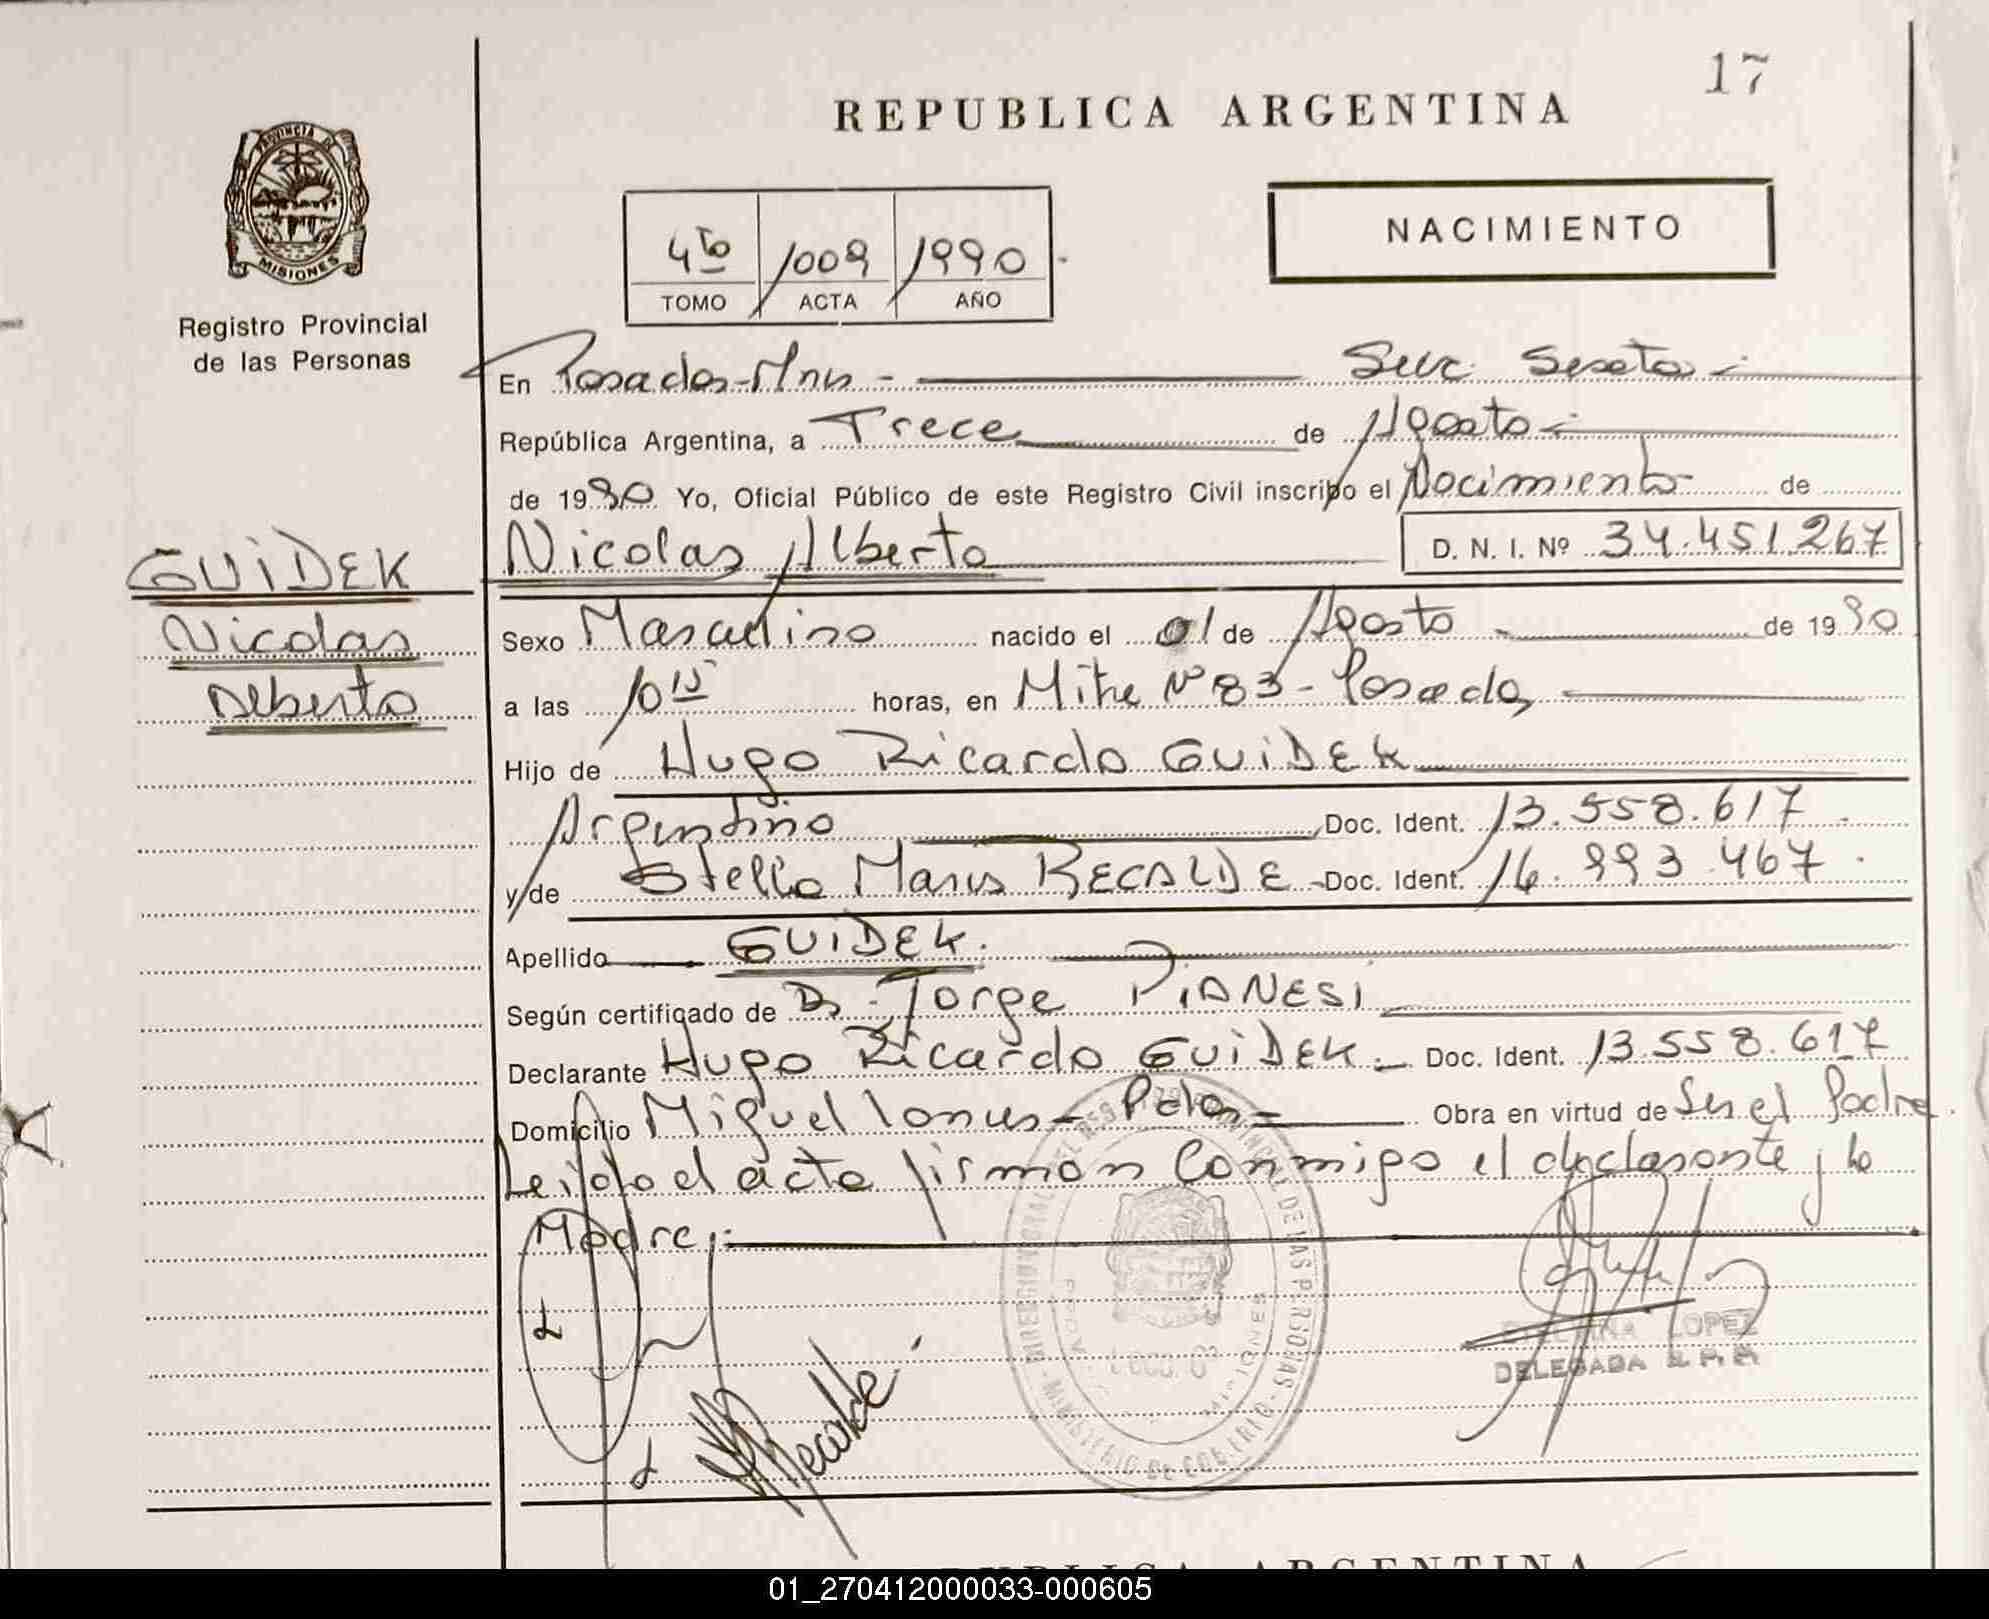 17
REPUBLICA ARGENTINA
PROVINCIA DE
MISIONES
Registro Provincial
de las Personas
NACIMIENTO
4to 1009 1990
TOMO ACTA AÑO
En Posadas-Mns - Secc. Sexta -
República Argentina, a Trece de Agosto -
de 1990 Yo, Oficial Público de este Registro Civil inscribo el Nacimiento de
Nicolas Alberto D. N. I. Nº 34.451.267
GUIDEK
Nicolas
Alberto
Sexo Masculino nacido el 01 de Agosto - de 1990
a las 10 15 horas, en Mitre Nº 83 - Posadas
Hijo de Hugo Ricardo GUIDEK
Argentino Doc. Ident. 13.558.617 -
y de Stella Maris RECALDE - Doc. Ident. 16.993.467.
Apellido GUIDEK.
Según certificado de Dr. Jorge PIANESI
Declarante Hugo Ricardo GUIDEK. Doc. Ident. 13.558.617
Domicilio Miguel Lanus - Pdas - Obra en virtud de Ser el Padre
Leido el acta firman Conmigo el declarante y la
Madre.
Recalde
LOPEZ
DELEGADA R. P. P.
MINISTERIO DE GOBIERNO
DE LAS PERSONAS
REPUBLICA ARGENTINA
01_270412000033-000605